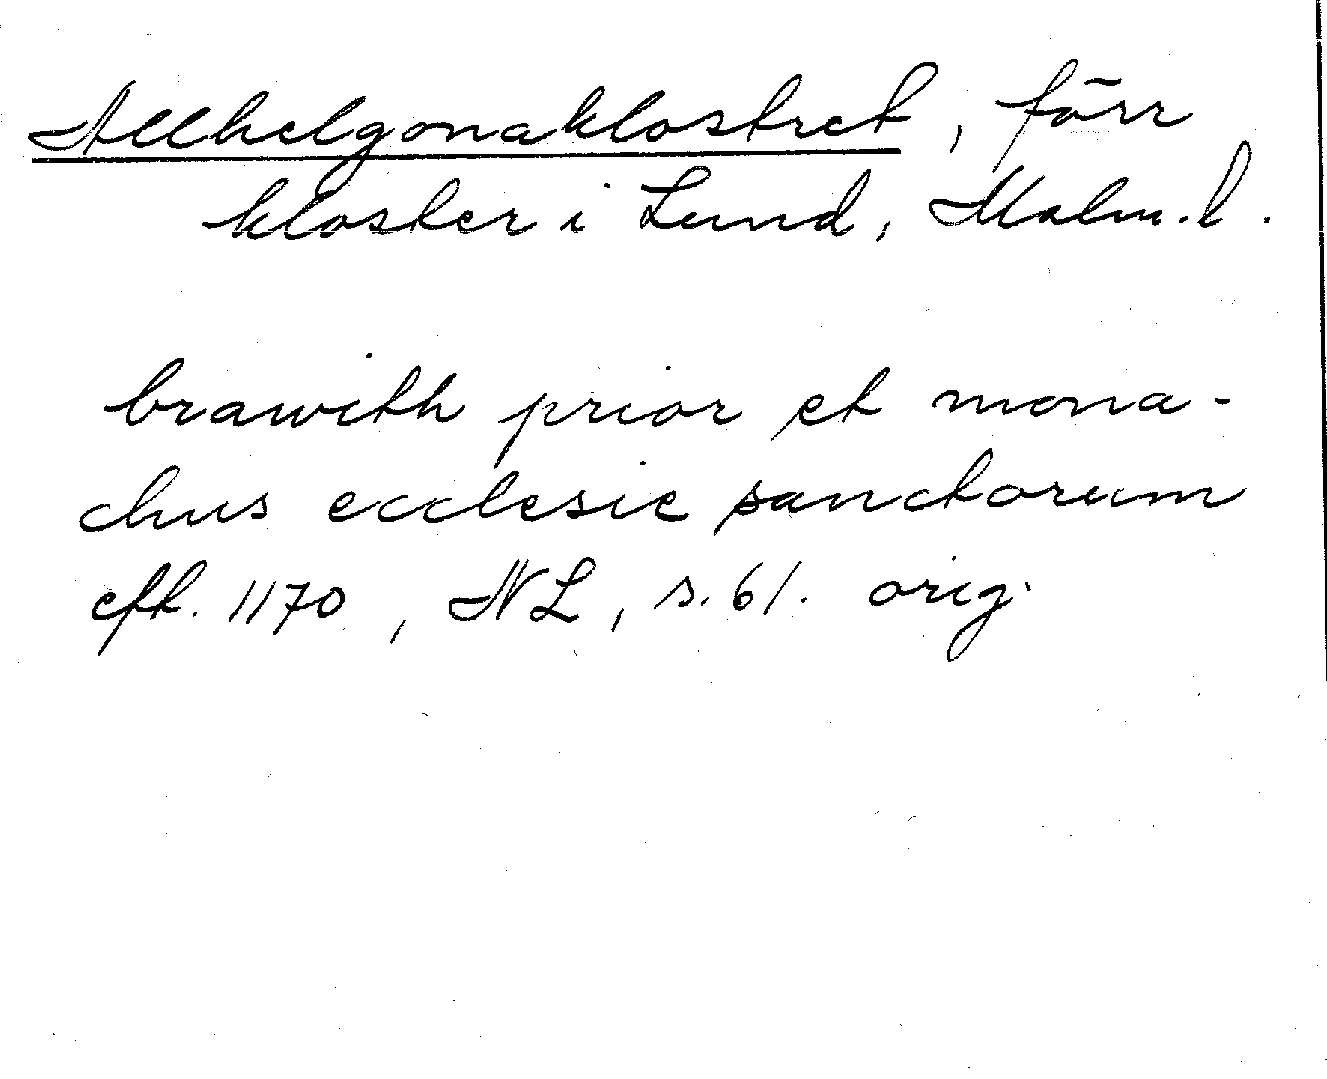 Allhelgonaklostret, förr
kloster i Lund, Malm. l.
brawith prior et mona-
chus ecclesie sanctorum
eft. 1170, NL, s. 61. orig.